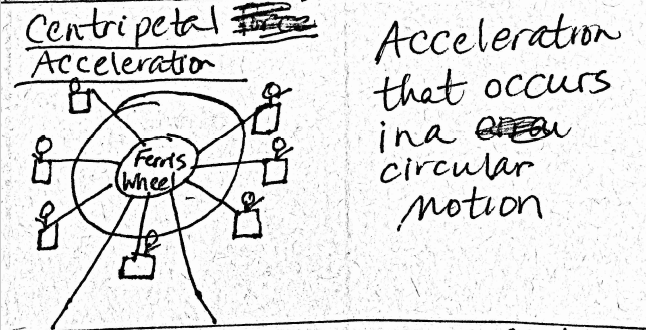 Centripetal
Acceleration
Ferris
Wheel
Acceleration
that occurs
in a
circular
motion